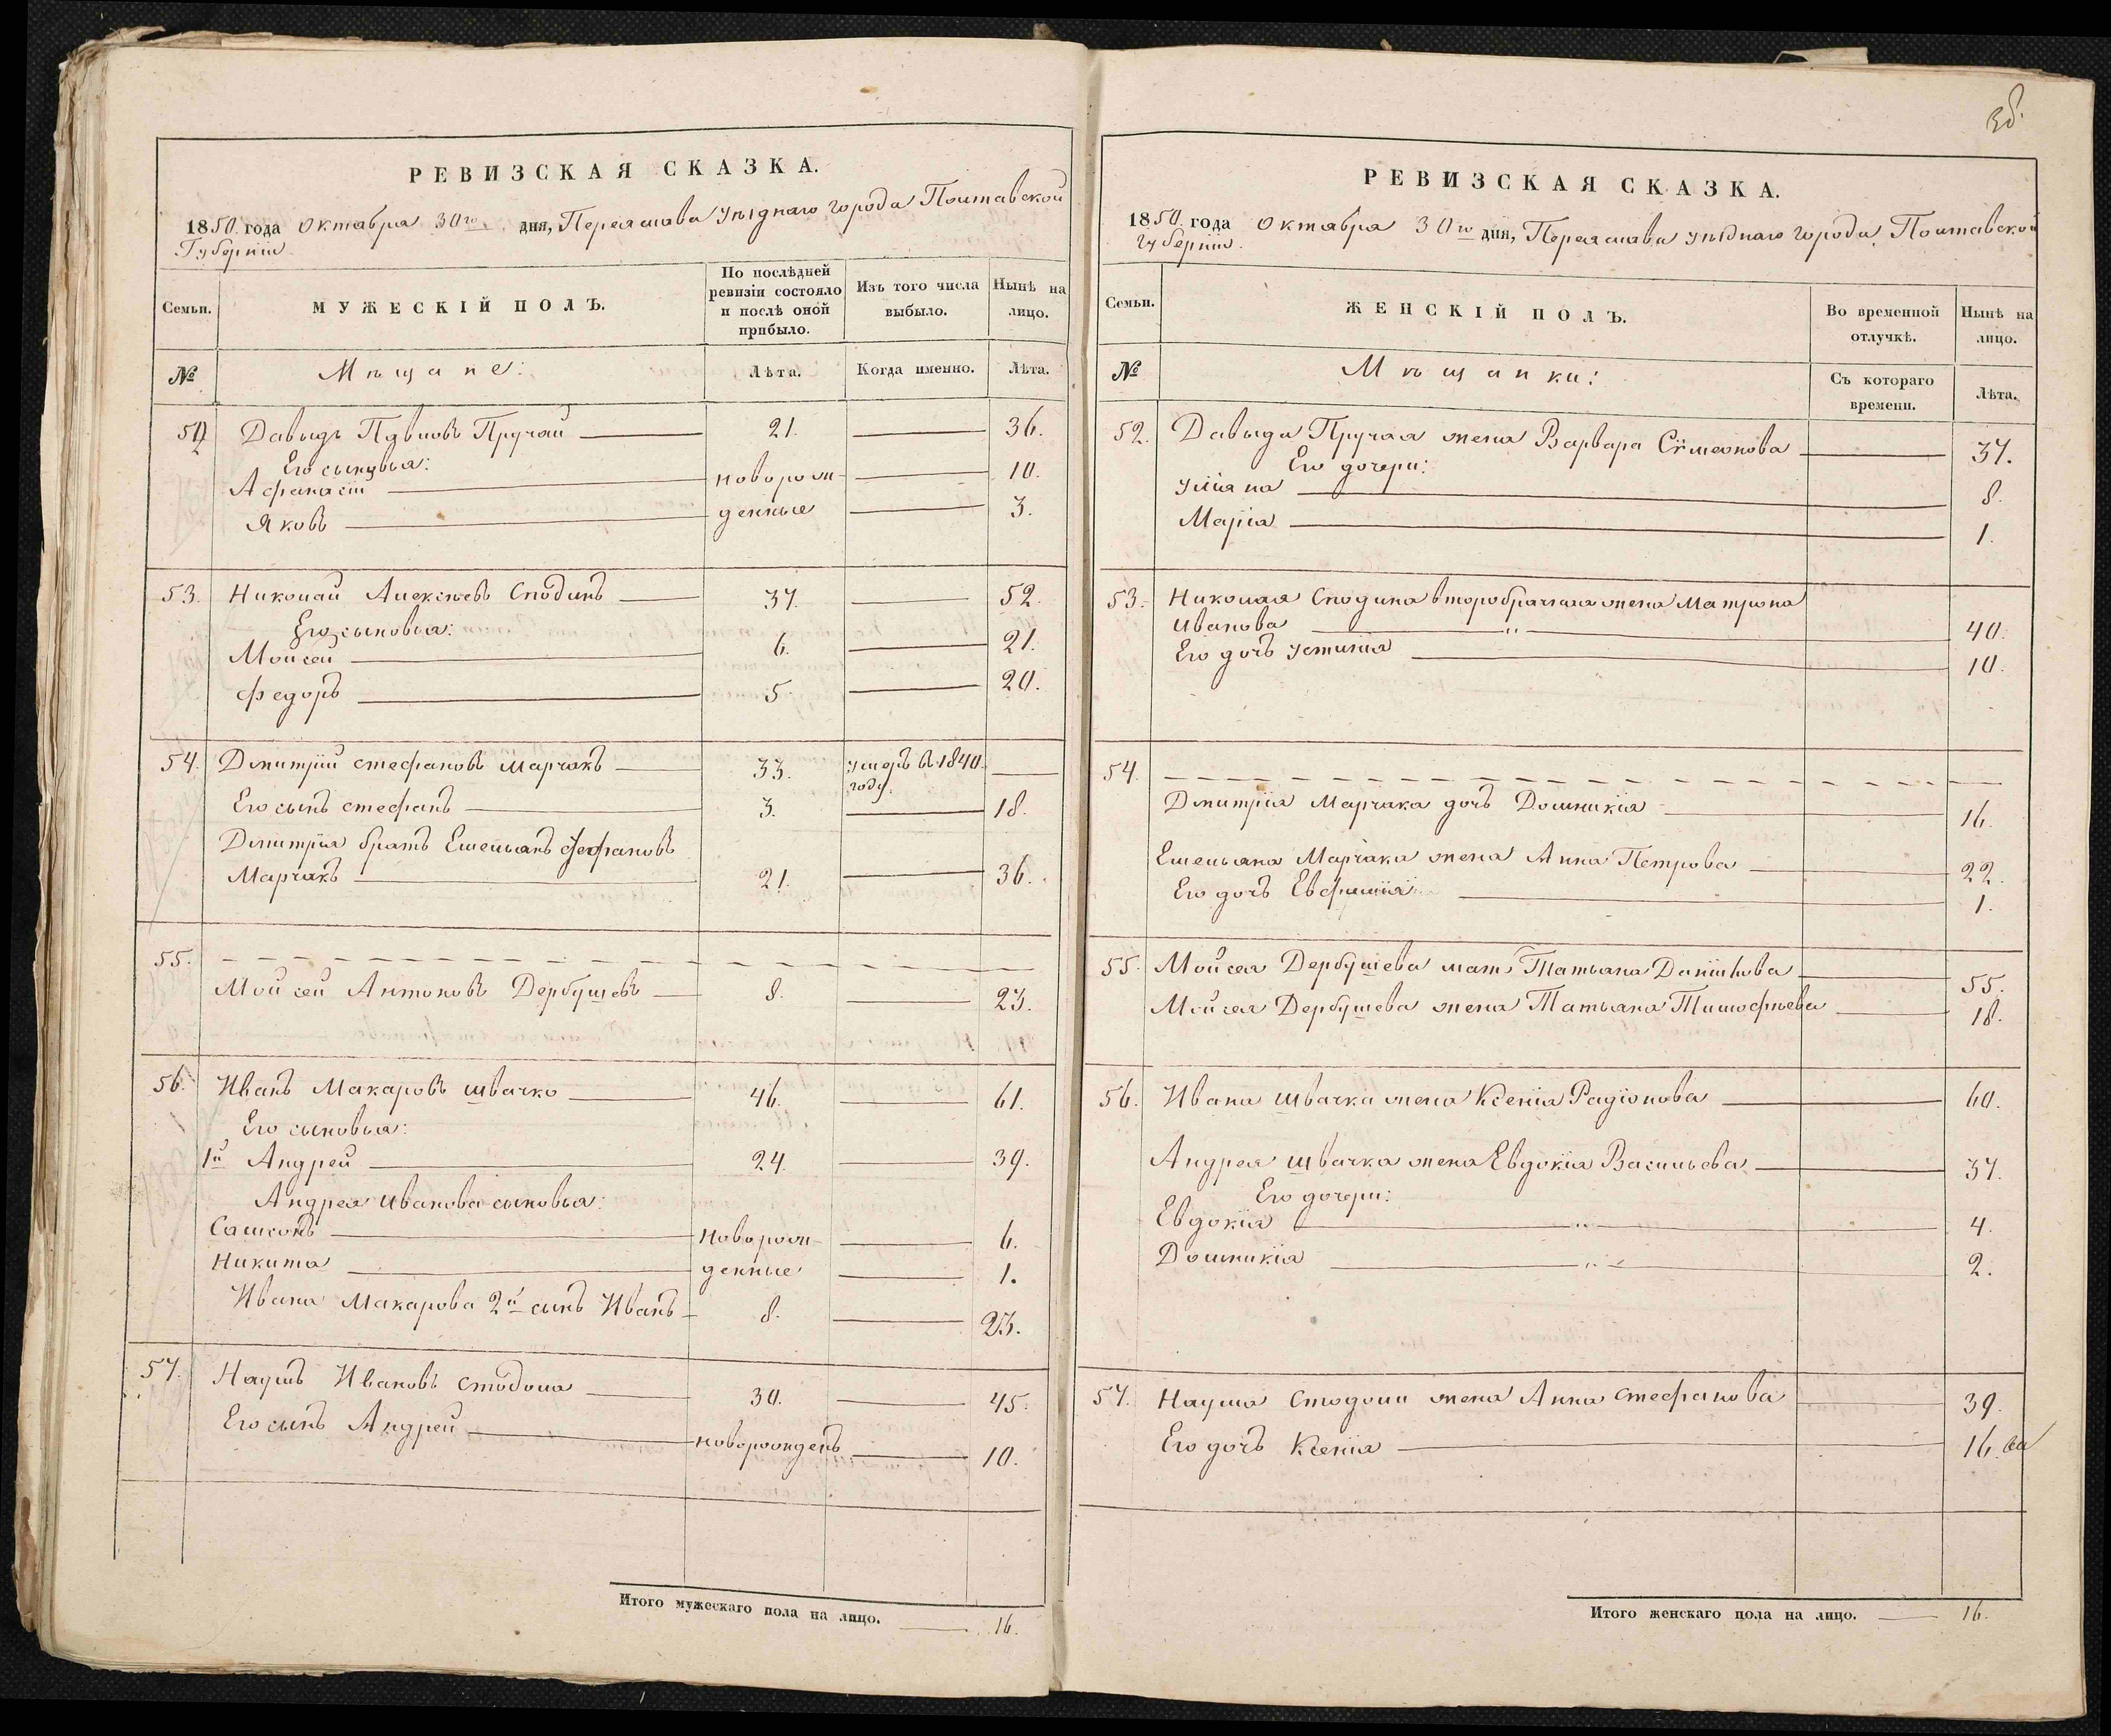 РЕВИЗСКАЯ СКАЗКА.
1850 года Октября 30го дня, Переяслава уѣзднаго города Полтавской
Губерніи
Семьи.
МУЖЕСКІЙ ПОЛЪ.
По послѣдней ревизіи состояло и послѣ оной прибыло.
Изъ того числа выбыло.
Нынѣ на лицо.
№
Мѣщане:
Лѣта.
Когда именно.
Лѣта.
52 Давыдъ Пручай 21. 36.
Его сыновья:
Афанасій новорож- 10.
Яковъ денные 3.
53. Николай Алексѣевъ Сподинъ 37. 52.
Его сыновья:
Мойсей 6. 21.
Федоръ 5. 20.
54. Дмитрій Стефановъ Марчакъ 33. умеръ въ 1840 году.
Его сынъ Стефанъ 3. 18.
Дмитрія братъ Емельянъ Стефановъ
Марчакъ 21. 36.
55.
Мойсей Антоновъ Дербушевъ 8. 23.
56. Иванъ Макаровъ Швачко 46. 61.
Его сыновья:
1й Андрей 24. 39.
Андрея Иванова сыновья:
Самсонъ новорож- 6.
Никита денные 1.
Ивана Макарова 2й сынъ Иванъ 8. 23.
57. Наумъ Ивановъ Стодола 30. 45.
Его сынъ Андрей новорожденъ 10.
Итого мужескаго пола на лицо. 16.
36.
РЕВИЗСКАЯ СКАЗКА.
1850 года Октября 30го дня, Переяслава уѣзднаго города, Полтавской
Губерніи.
Семьи.
ЖЕНСКІЙ ПОЛЪ.
Во временной отлучкѣ.
Нынѣ на лицо.
№
Мѣщанки:
Съ котораго времени.
Лѣта.
52. Давыда Пручая жена Варвара Сѵмеонова 37.
Его дочери:
Уліяна 8.
Марія 1.
53. Николая Сподина второбрачная жена Матрона
Иванова 40.
Его дочь Устинія 10.
54.
Дмитрія Марчака дочь Домникія 16.
Емельяна Марчака жена Анна Петрова 22.
Его дочь Евфимія 1.
55. Мойсея Дербушева мать Татьяна Данілова 55.
Мойсея Дербушева жена Татьяна Тимофѣева 18.
56. Ивана Швачка жена Ксенія Радіонова 60.
Андрея Швачка жена Евдокія Васильева 37.
Его дочери:
Евдокія 4.
Домникія 2.
57. Наума Стодоли жена Анна Стефанова 39.
Его дочь Ксенія 16.
Итого женскаго пола на лицо. 16.